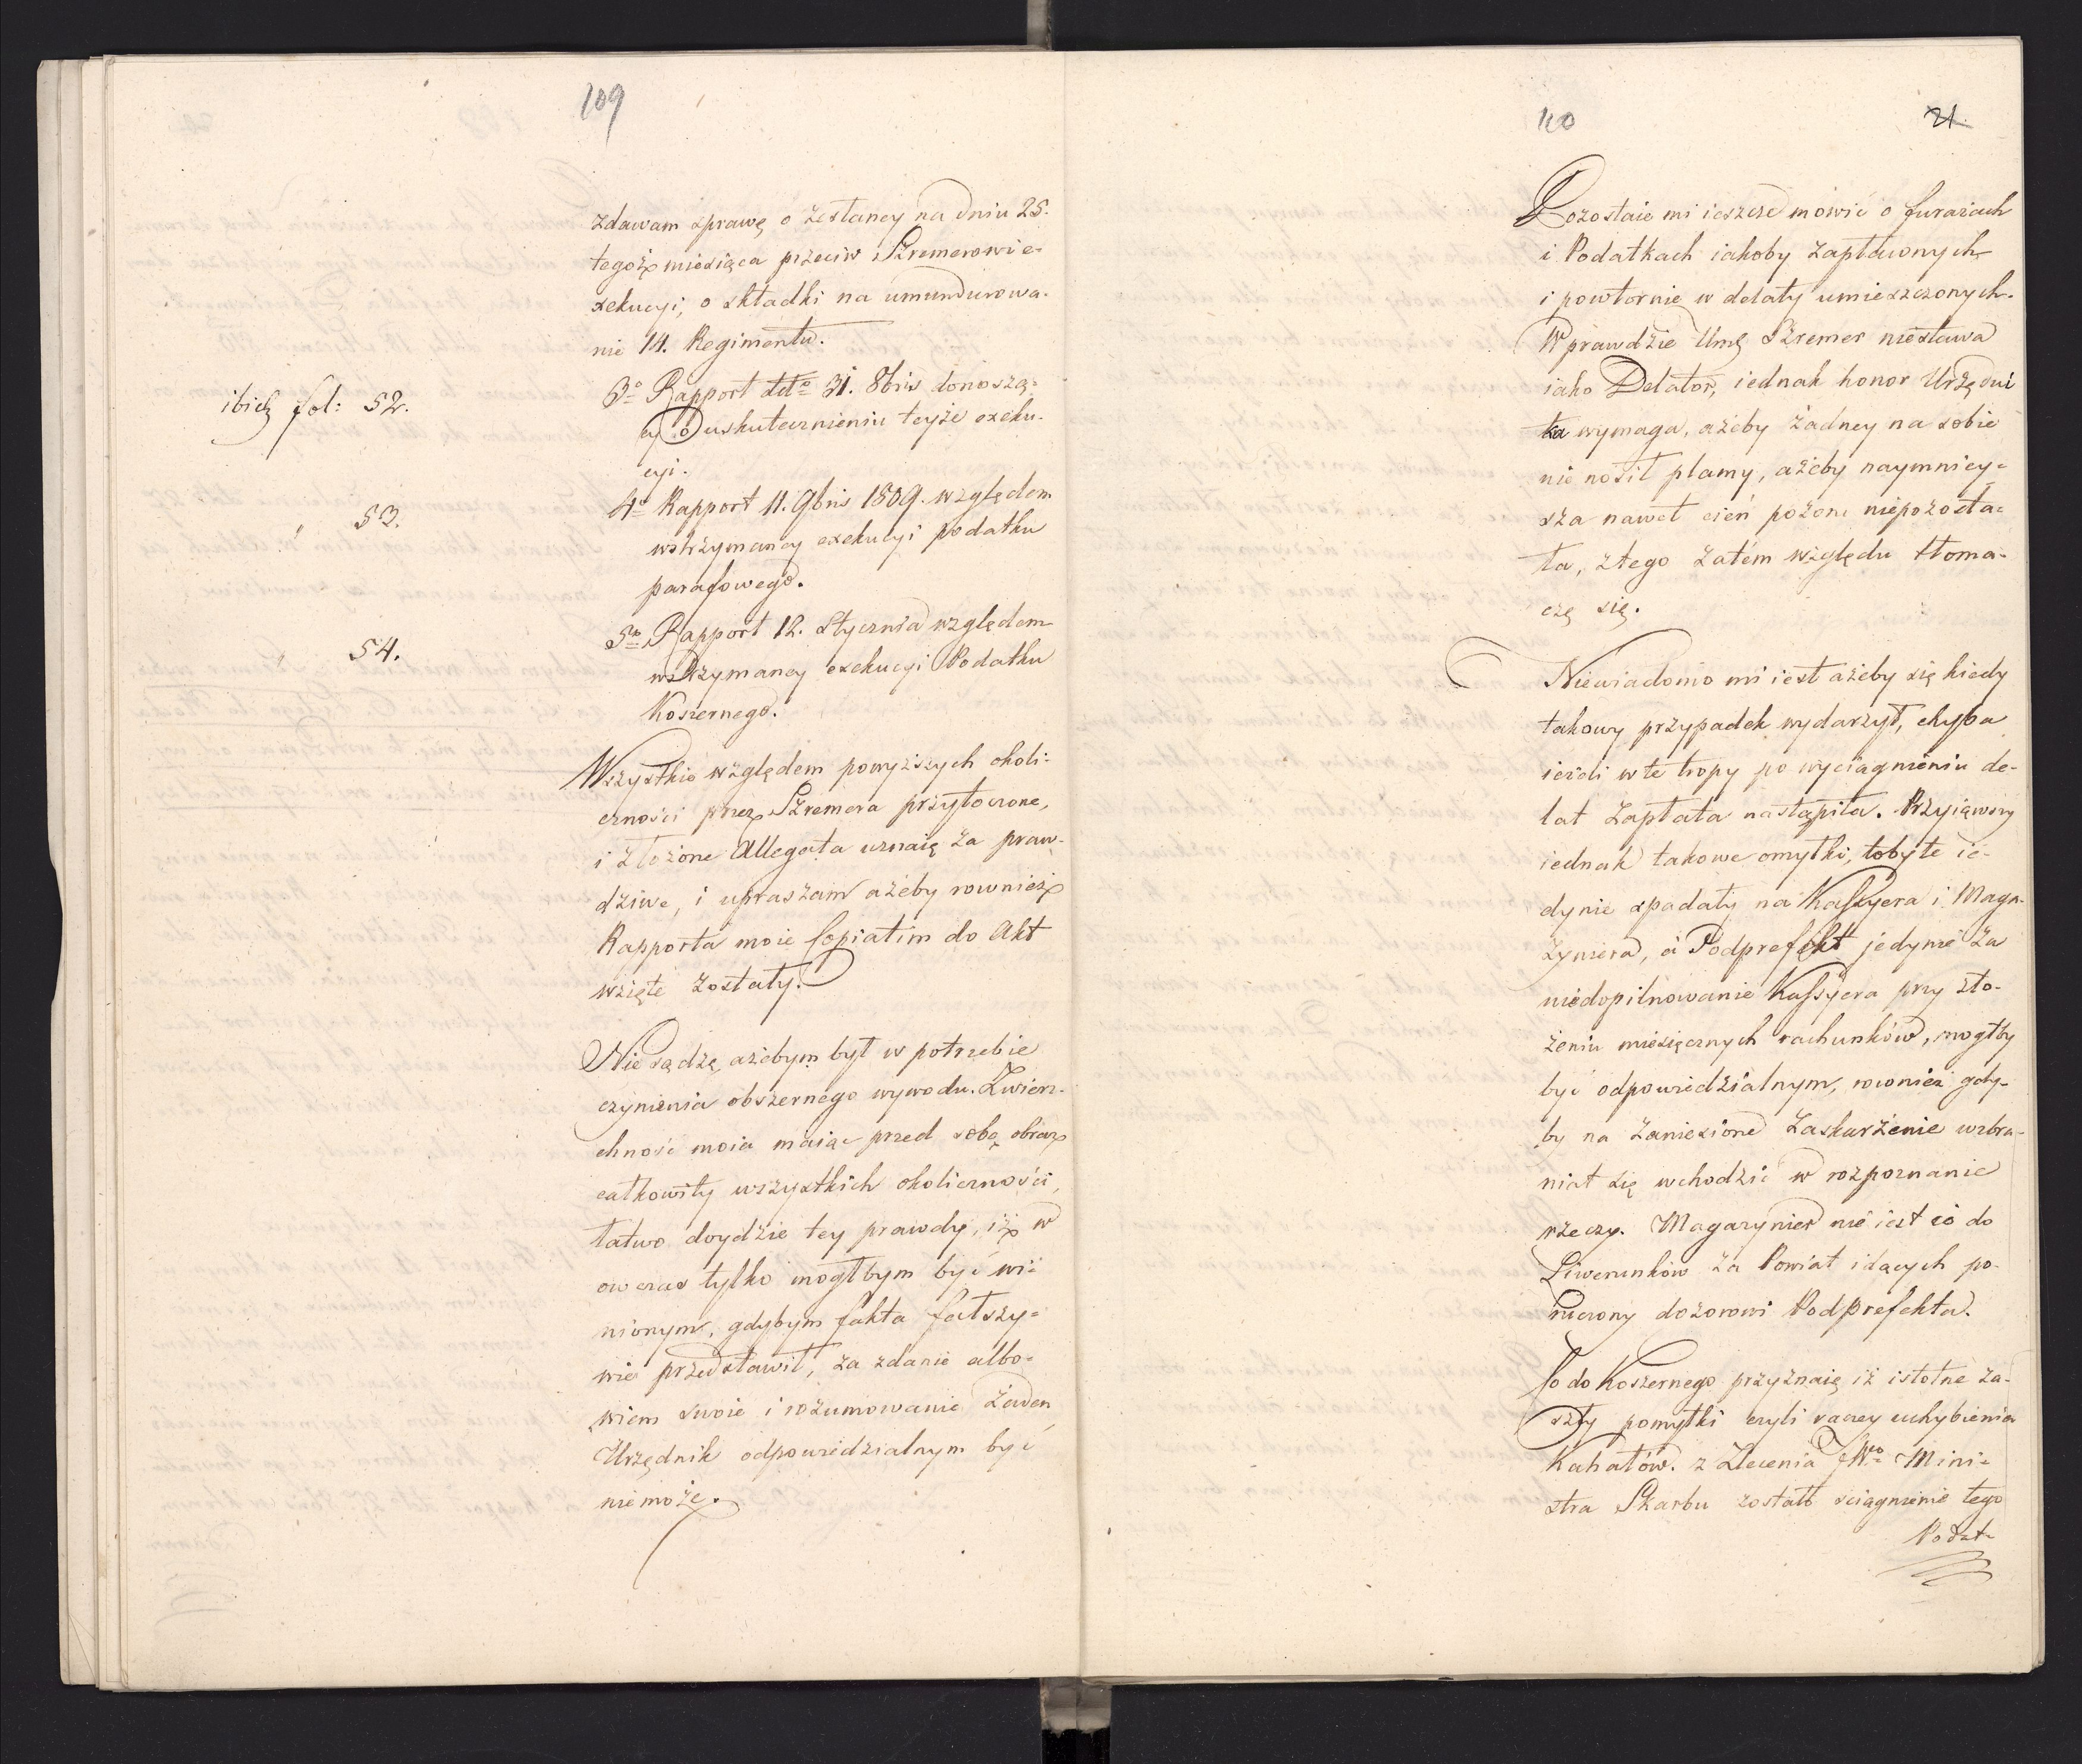 109
zdawam sprawę o zesłaney na dniu 25.
tegoż miesiąca przeciw Szremerowi e-
xekucyi, o składki na umundurowa-
nie 14. Regimentu.
ibid fol: 52.
3o Rapport dto 31. 8bris donoszą-
cy o uskutecznieniu teyże exeku-
cyi.
53.
4o Rapport 11. 9bris 1809. względem
wstrzymaney exekucyi podatku
parafowego.
54.
5to Rapport 12. Stycznia względem
wstrzymaney exekucyi Podatku
Koszernego.
Wszystkie względem powyższych okoli-
czności przez Szremera przytoczone,
i złożone Allegata uznaię za praw-
dziwe, i upraszam ażeby również
Rapporta moie Copiatim do Akt
wzięte zostały.
Nie sądzę, ażebym był w potrzebie
czynienia obszernego wywodu. Zwierz-
chność moia maiąc przed sobą obraz
całkowity wszystkich okoliczności,
łatwo doydzie tey prawdy, iż w
ow czas tylko mogłbym być wi-
nionym, gdybym fakta fałszy-
wie przedstawił, za zdanie albo-
wiem swoie i rozumowanie żaden
Urzędnik odpowiedzialnym być
nie może.
110
21.
Pozostaie mi ieszcze mówić o furażach
i Podatkach iakoby zapłaconych
i powtornie w delaty umieszczonych.
Wprawdzie Umę Szremer niestawa
iako Delator, iednak honor Urzędni
ka wymaga, ażeby żadney na sobie
nie nosił plamy, ażeby naymniey-
sza nawet cień pozoru niepozosta-
ła, z tego zatém względu tłoma-
czę się.
Niewiadomo mi iest ażeby się kiedy
takowy przypadek wydarzył, chyba
ieżeli w te tropy po wyciągnieniu de-
lat zapłata nastąpiła. Przyiąwszy
iednak takowe omyłki, toby te ie-
dynie spadały na Kassyera i Maga-
zyniera, a Podprefekt jedynie za
niedopilnowanie Kassyera przy zło-
żeniu miesięcznych rachunków, mogłby
być odpowiedzialnym, rownież gdy-
by na zaniesione zaskarżenie wzbra-
niał się wchodzić w rozpoznanie
rzeczy. Magazynier nie iest co do
Liwerunków za Powiat idących po-
ruczony dozorowi Podprefekta.
Co do Koszernego przyznaię iż istotne za-
szły pomyłki czyli raczey uchybienia
Kahałów. z Zlecenia JWo Mini-
stra Skarbu zostało ściągnienie tego
Podat-